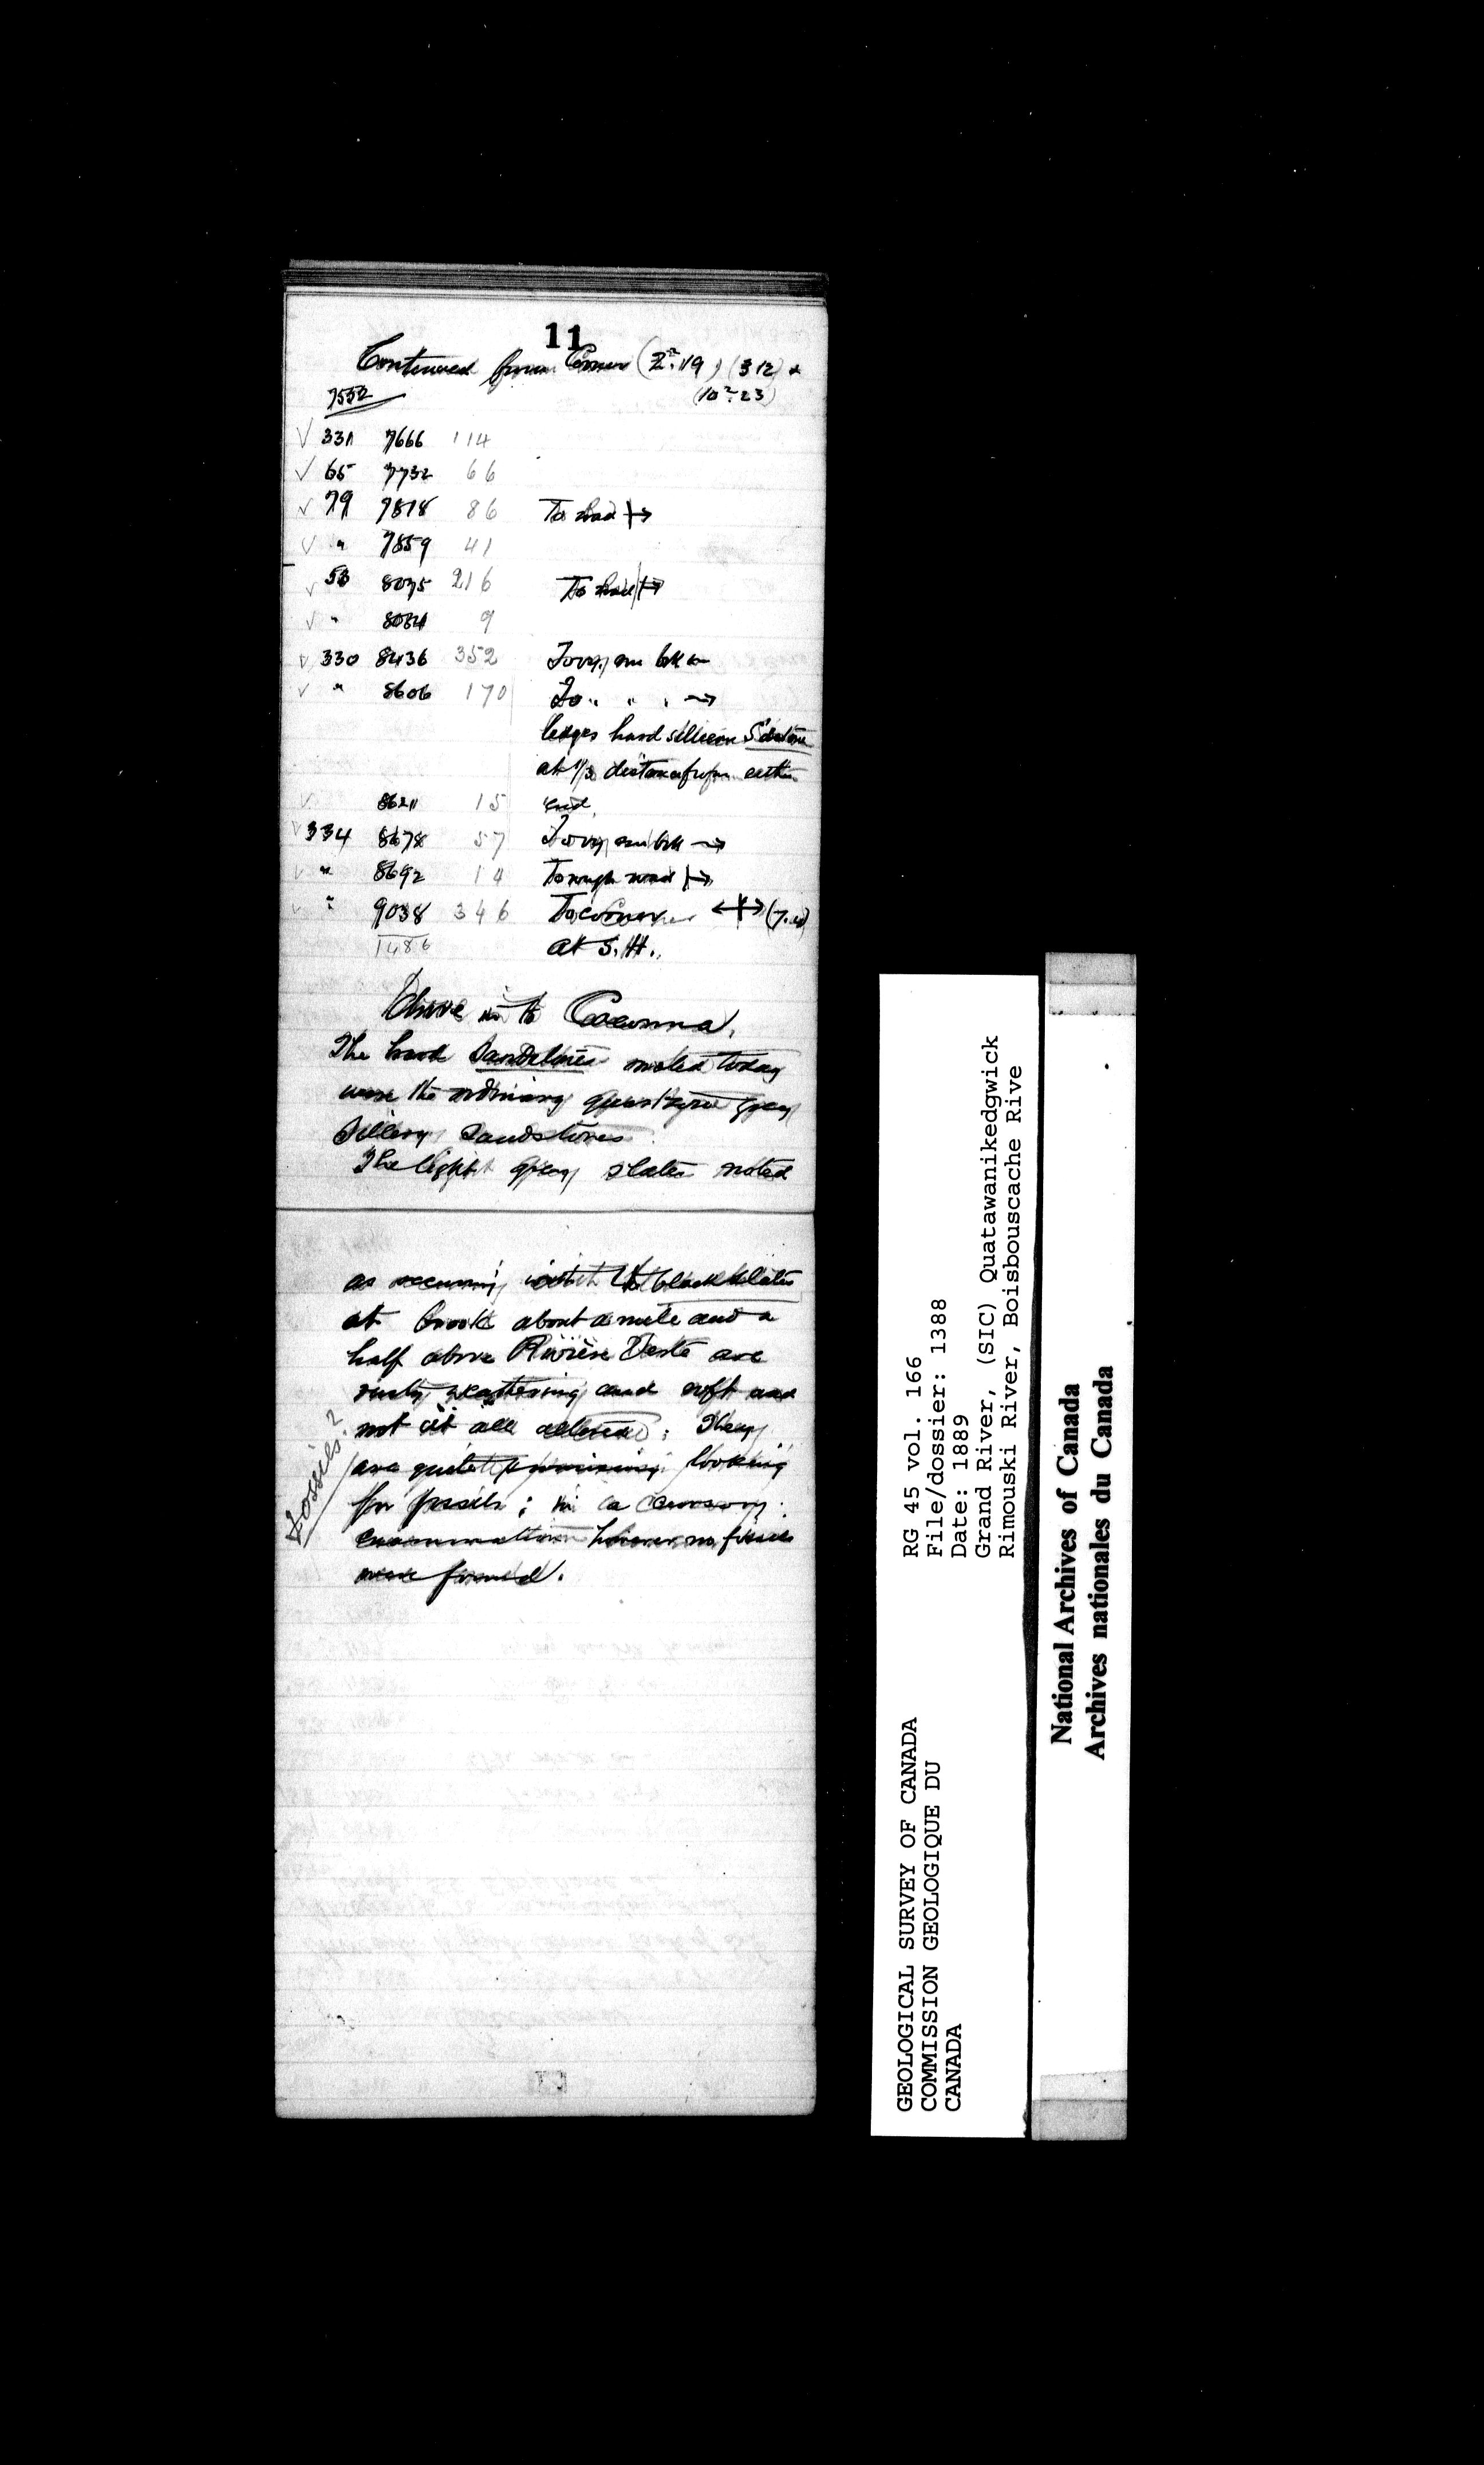 11
Continued from Corner (2.19) (312) &
7552 (10.23)
✓ 331 7666 114
✓ 65 7732 66
✓ 79 7818 86 To road
✓ " 7859 41
✓ 53 8075 216 To road
✓ " 8084 9
✓ 330 8436 352 To vy. sm bk ←
✓ " 8606 170 To " " " →
ledges hard
at 1/3 distance from either
✓ 8621 15 end.
✓ 334 8678 57 To vy sm bk →
✓ " 8692 14 To rough road
✓ " 9038 346 To Corner
1486 at S.H.
Drive in to Cacouna.
The hard Sandstones noted today
were the ordinary quartzose grey
Sillery Sandstones
The light grey slates noted
as occurring with the black slates
at brook about a mile and a
half above Rivière Verte are
rusty weathering and soft and
not at all altered; They
are quite promising looking
for fossils; in a cursory
examination however no fossils
were found.
Fossils?
RG 45 vol. 166
File/dossier: 1388
Date: 1889
Grand River, (SIC) Quatawanikedgwick
Rimouski River, Boisbouscache Rive
GEOLOGICAL SURVEY OF CANADA
COMMISSION GEOLOGIQUE DU
CANADA
National Archives of Canada
Archives nationales du Canada